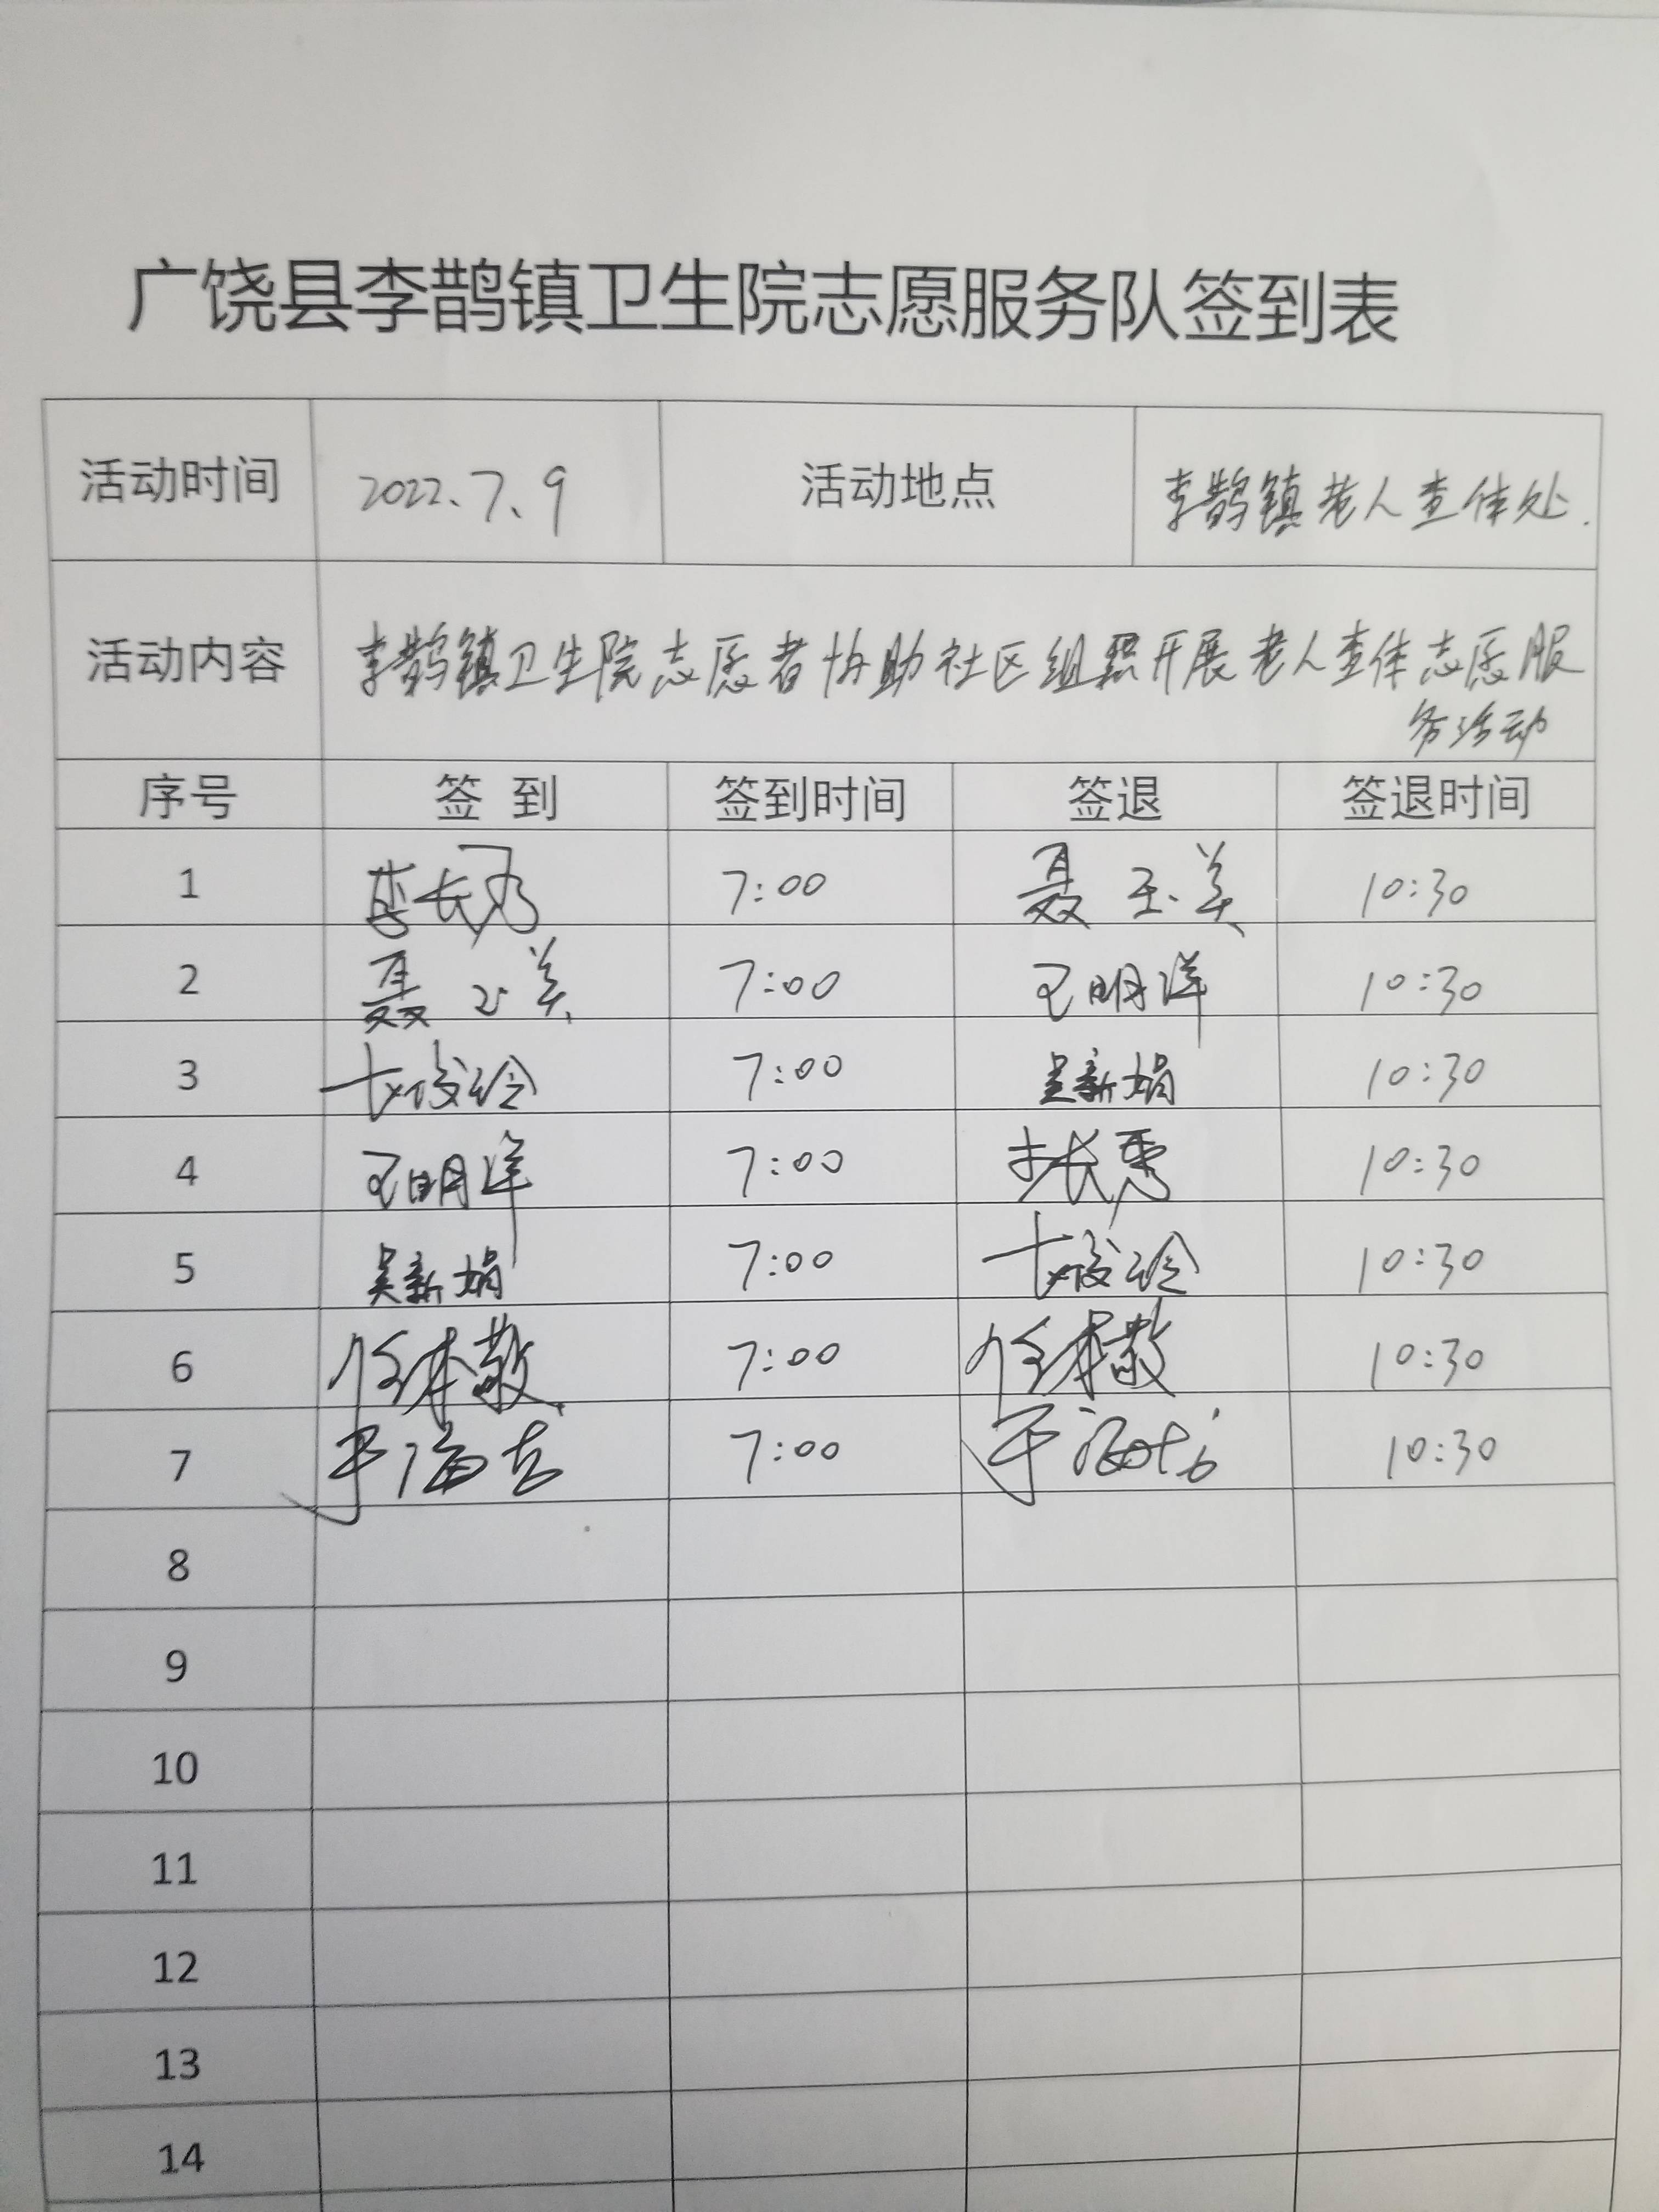 广饶县李鹊镇卫生院志愿服务队签到表
活动时间 2022.7.9 活动地点 李鹊镇老人查体处.
活动内容 李鹊镇卫生院志愿者协助社区组织开展老人查体志愿服
务活动
序号 签 到 签到时间 签退 签退时间
1 李长秀 7:00 聂玉美 10:30
2 聂玉美 7:00 王明洋 10:30
3 7:00 吴新娟 10:30
4 王明洋 7:00 李长秀 10:30
5 吴新娟 7:00 10:30
6 任本敬 7:00 任本敬 10:30
7 7:00 10:30
8
9
10
11
12
13
14